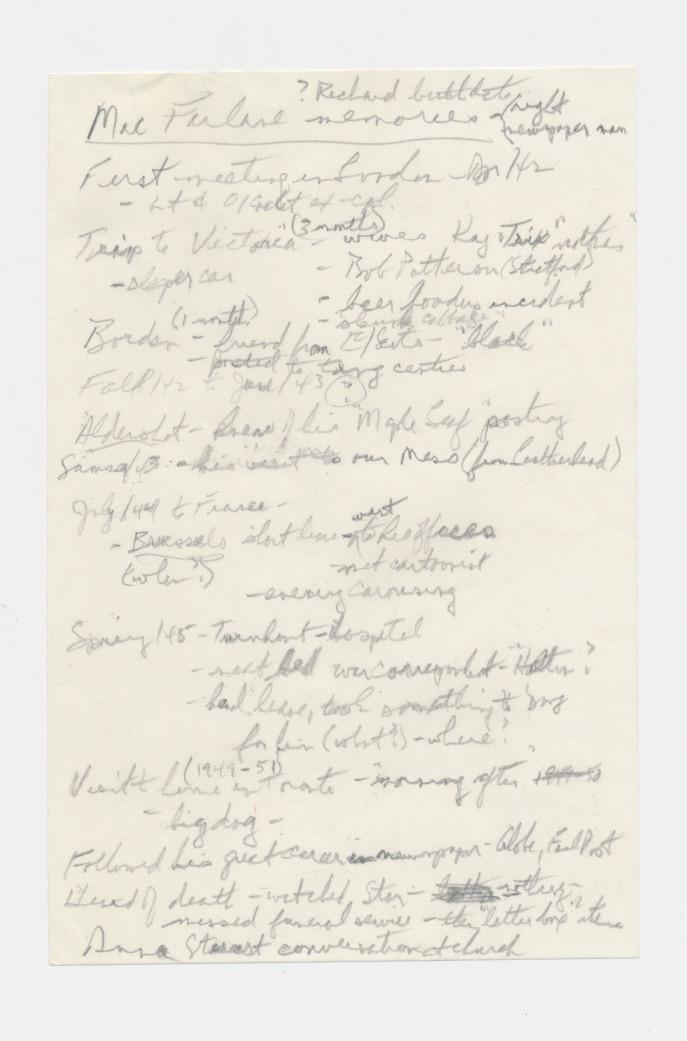 ? Richard birthdate
MacFarlane memories - (night
newspaper man
First meeting in London - Apr/42
- Lt & O/Cadet at
Trip to Victoria (3 months) - wives Kay "Trix"
- sleeper car
- Bob Patterson (Stratford)
- beer incident
Borden (1 month) - "skunk cabbage"
- friend from - "black"
- posted to trng centres
Fall/42 to June/43 (?)
Aldershot - knew of his "Maple Leaf" posting
- his visit to our Mess (from Leatherhead)
July/44 to France -
- Brussels short leave - went to his offices
(when?)
- met cartoonist
- evening carousing
Spring/45 - Turnhout - hospital
- next bed war correspondent - "
- had leave, took something to
for him (what?) - where?
Visit t home in Toronto (1949-51) - "morning after"
- big dog -
Followed his great career in newspaper - Globe, Fin Post
Heard of death - watched Star - nothing -
missed funeral service - the "letter box" item
Anna Stewart conversation at church